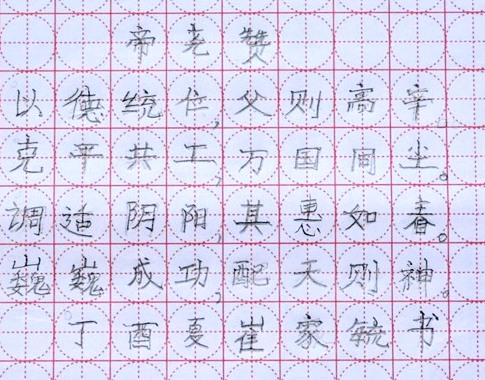 帝尧赞
以德统位，父则高辛。
克平共工，万国同尘。
調适阴阳，其惠如春。
巍巍成功，配天则神。
丁酉夏崔家毓书